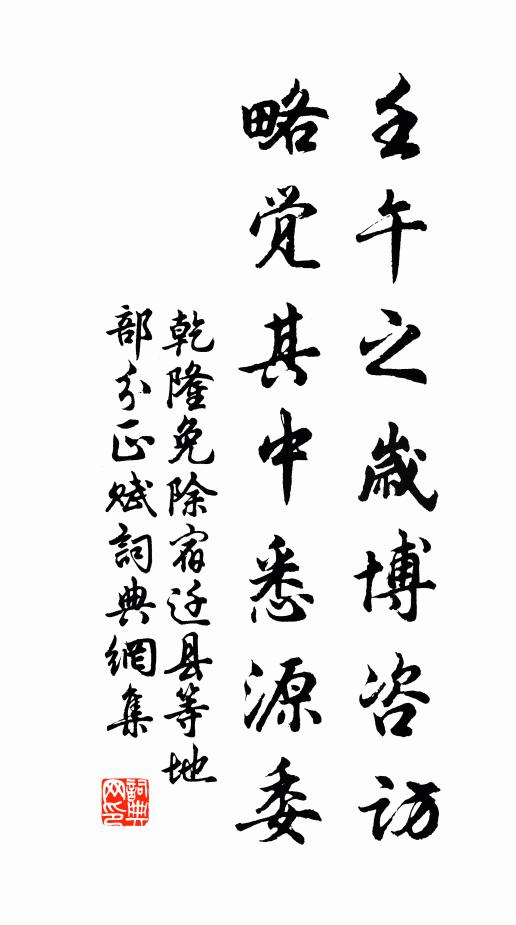 壬午之歲博咨访
略觉其中悉源委
乾隆免除宿迁县等地
部分正赋詞典網集
詞典网印